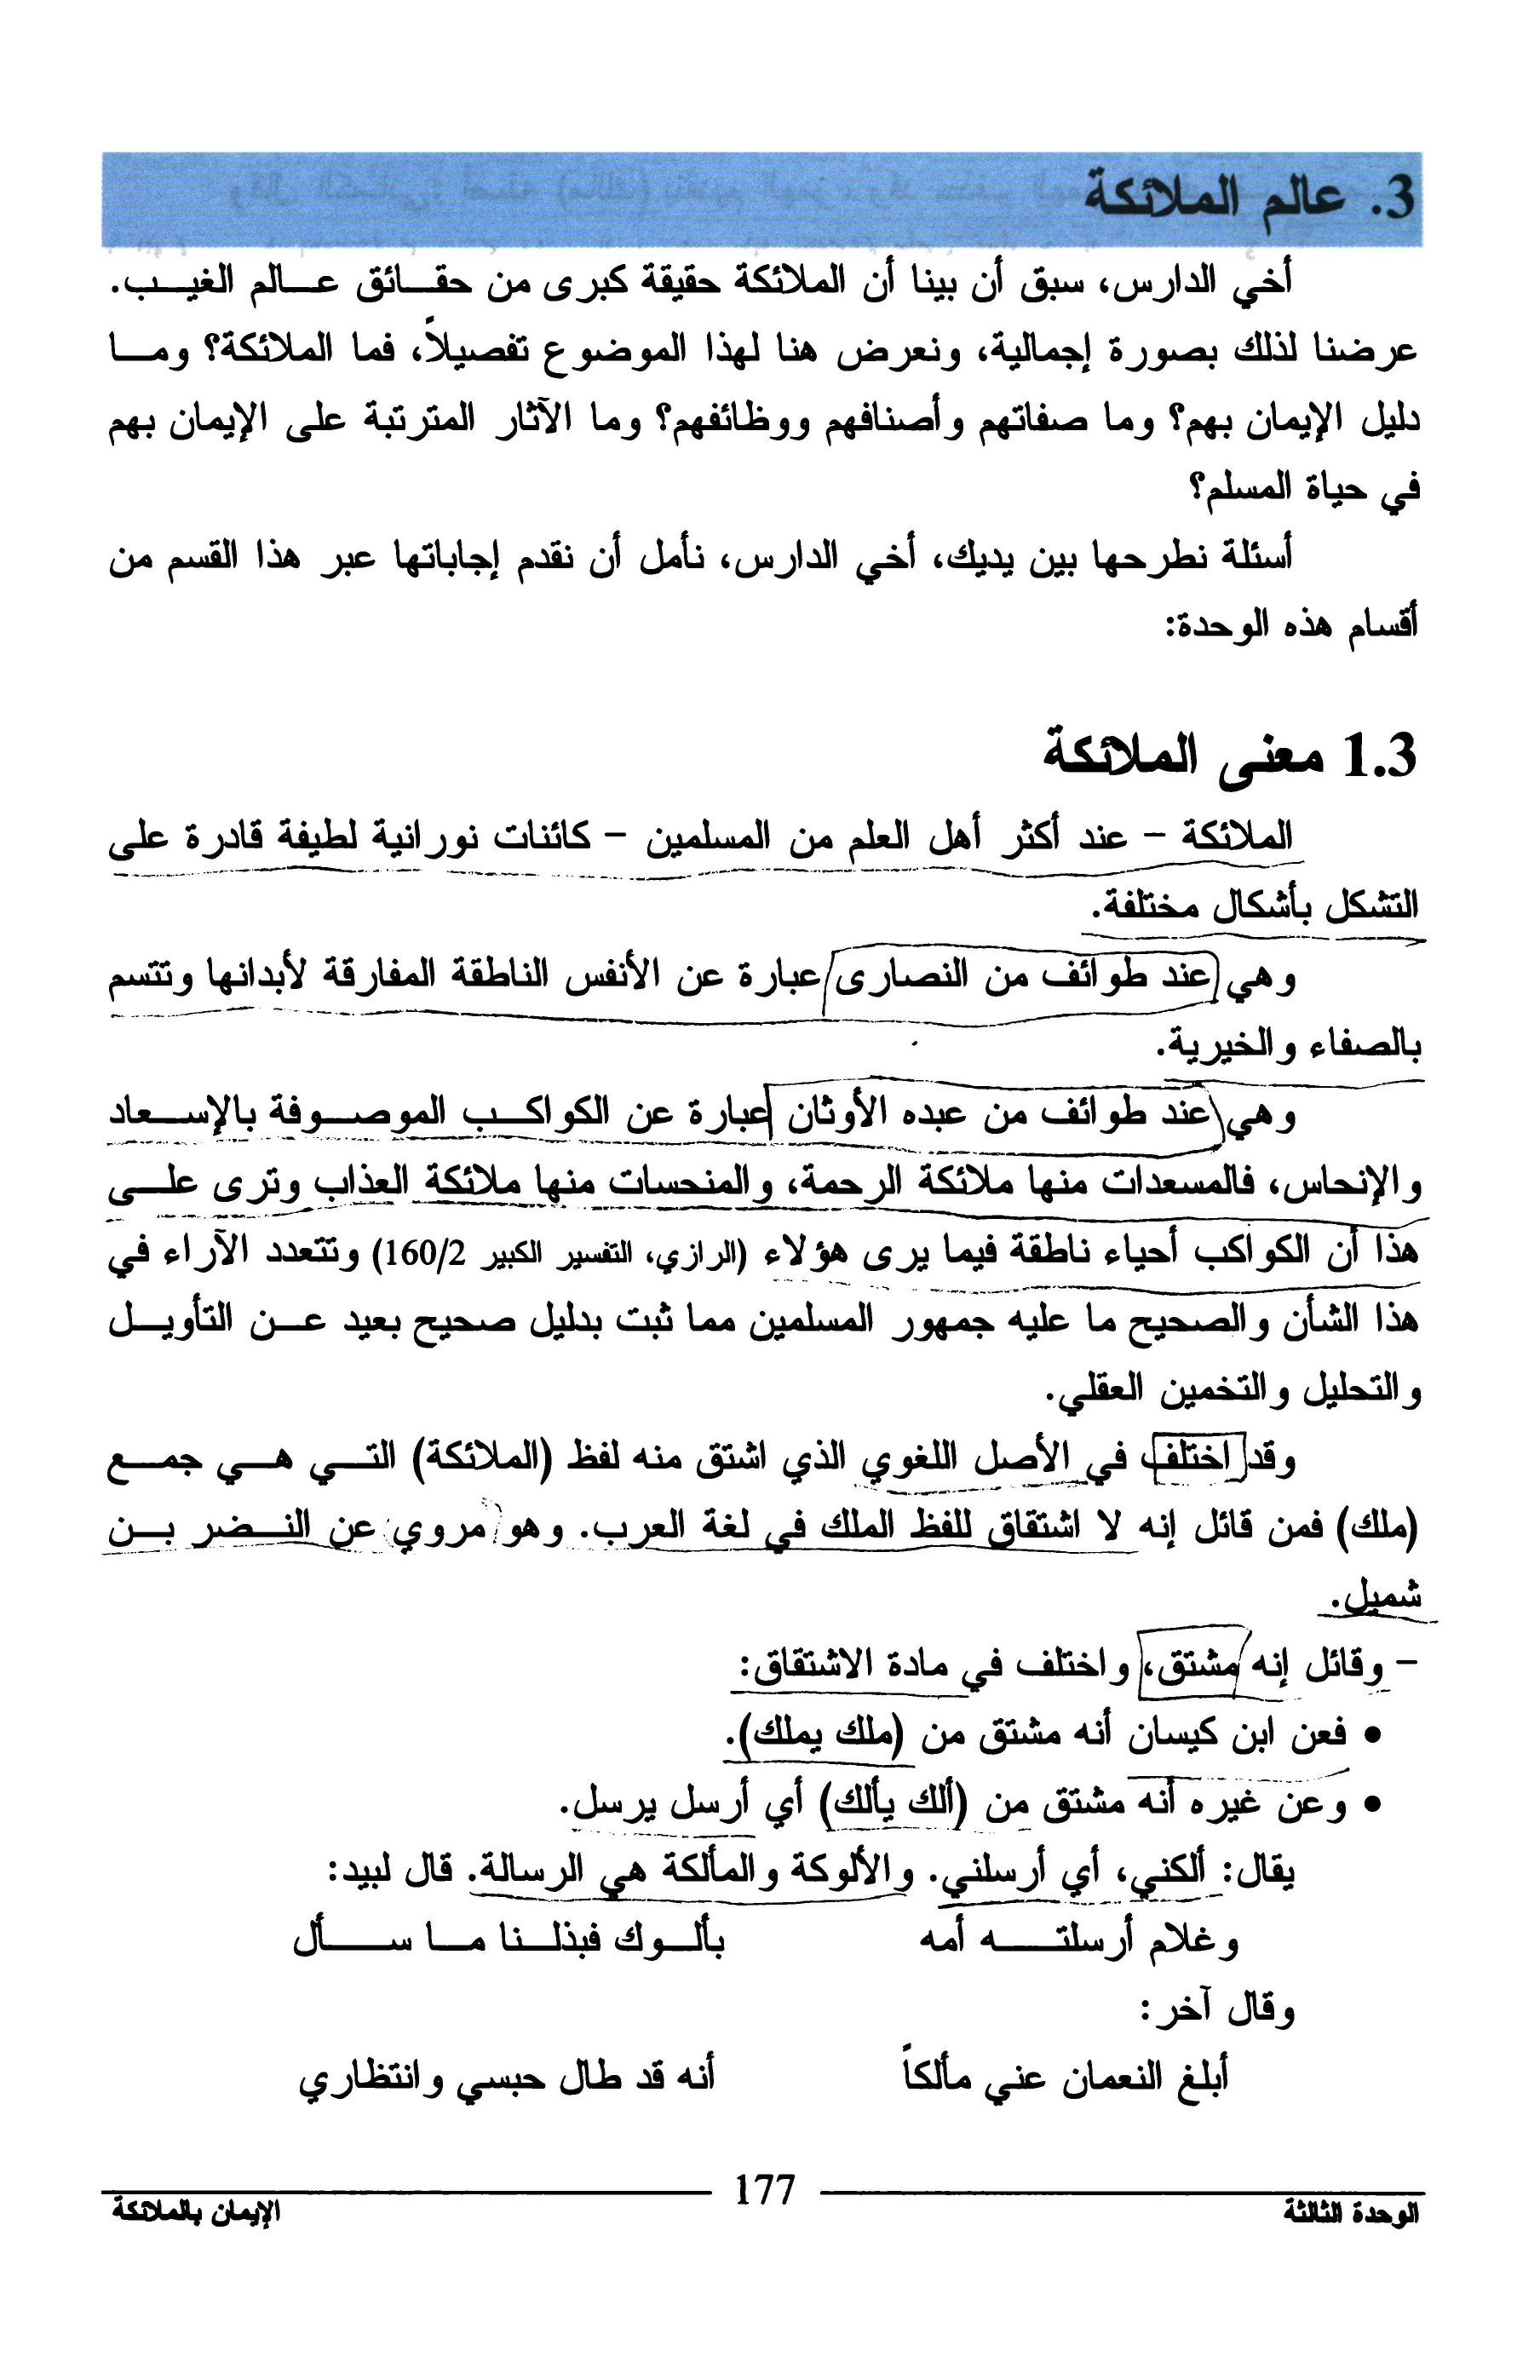 3. عالم الملائكة
أخي الدارس، سبق أن بينا أن الملائكة حقيقة كبرى من حقائق عالم الغيب.
عرضنا لذلك بصورة إجمالية، ونعرض هنا لهذا الموضوع تفصيلاً، فما الملائكة؟ وما
دليل الإيمان بهم؟ وما صفاتهم وأصنافهم ووظائفهم؟ وما الآثار المترتبة على الإيمان بهم
في حياة المسلم؟
أسئلة نطرحها بين يديك، أخي الدارس، نأمل أن نقدم إجاباتها عبر هذا القسم من
أقسام هذه الوحدة:
1.3 معنى الملائكة
الملائكة - عند أكثر أهل العلم من المسلمين - كائنات نورانية لطيفة قادرة على
التشكل بأشكال مختلفة.
وهي عند طوائف من النصارى عبارة عن الأنفس الناطقة المفارقة لأبدانها وتتسم
بالصفاء والخيرية.
وهي عند طوائف من عبده الأوثان عبارة عن الكواكب الموصوفة بالإسعاد
والإنحاس، فالمسعدات منها ملائكة الرحمة، والمنحسات منها ملائكة العذاب وترى على
هذا أن الكواكب أحياء ناطقة فيما يرى هؤلاء (الرازي، التفسير الكبير 160/2) وتتعدد الآراء في
هذا الشأن والصحيح ما عليه جمهور المسلمين مما ثبت بدليل صحيح بعيد عن التأويل
والتحليل والتخمين العقلي.
وقد اختلف في الأصل اللغوي الذي اشتق منه لفظ (الملائكة) التي هي جمع
(ملك) فمن قائل إنه لا اشتقاق للفظ الملك في لغة العرب. وهو مروي عن النضر بن
شميل.
- وقائل إنه مشتق، واختلف في مادة الاشتقاق:
• فعن ابن كيسان أنه مشتق من (ملك يملك).
• وعن غيره أنه مشتق من (ألك يألك) أي أرسل يرسل.
يقال: ألكني، أي أرسلني. والألوكة والمألكة هي الرسالة. قال لبيد:
وغلام أرسلته أمه بألوك فبذلنا ما سأل
وقال آخر:
أبلغ النعمان عني مألكاً أنه قد طال حبسي وانتظاري
177
الوحدة الثالثة الإيمان بالملائكة